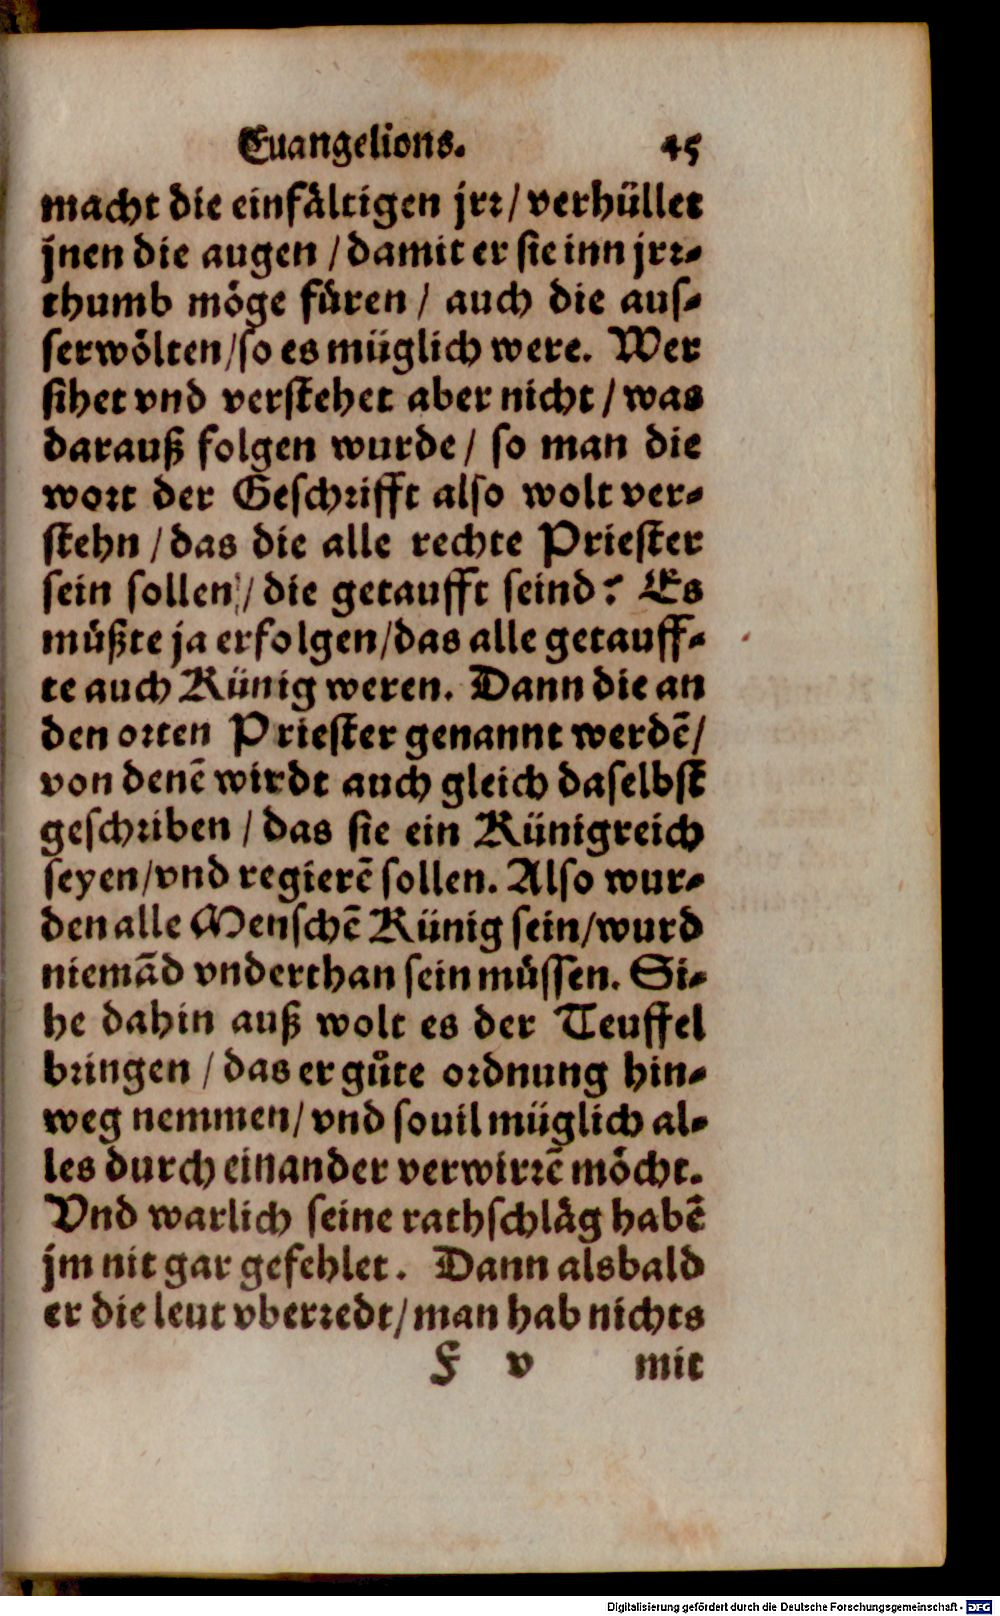 Euangelions. 45
macht die einfältigen jrr/ verhüllet
jnen die augen / damit er sie inn jrr-
thumb möge füren / auch die aus-
serwölten/so es müglich were. Wer
sihet vnd verstehet aber nicht / was
darauß folgen wurde / so man die
wort der Geschrifft also wolt ver-
stehn / das die alle rechte Priester
sein sollen / die getaufft seind? Es
müßte ja erfolgen/das alle getauff-
te auch Künig weren. Dann die an
den orten Priester genannt werdē/
von denē wirdt auch gleich daselbst
geschriben / das sie ein Künigreich
seyen/vnd regierē sollen. Also wur-
den alle Menschē Künig sein/wurd
niemād vnderthan sein müssen. Si-
he dahin auß wolt es der Teuffel
bringen / das er gůte ordnung hin-
weg nemmen/ vnd souil müglich al-
les durch einander verwirrē möcht.
Vnd warlich seine rathschläg habē
jm nit gar gefehlet. Dann alsbald
er die leut vberredt/man hab nichts
F v mit
Digitalisierung gefördert durch die Deutsche Forschungsgemeinschaft - DFG